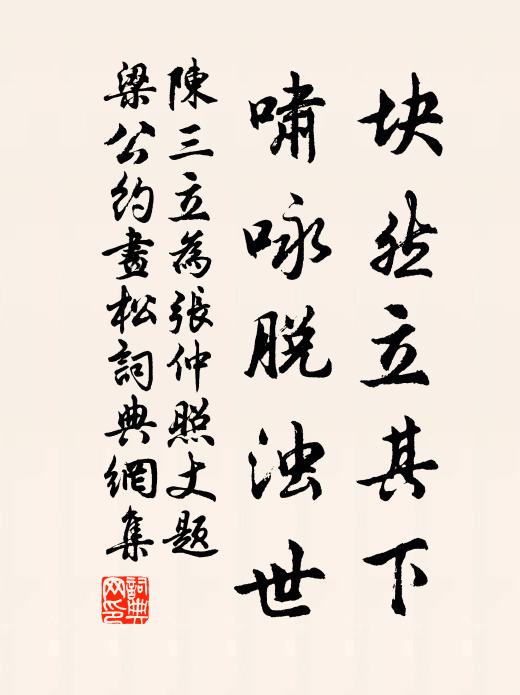 块然立其下
啸咏脱浊世
陳三立為張仲照丈题
梁公約畫松詞典網集
詞典网印